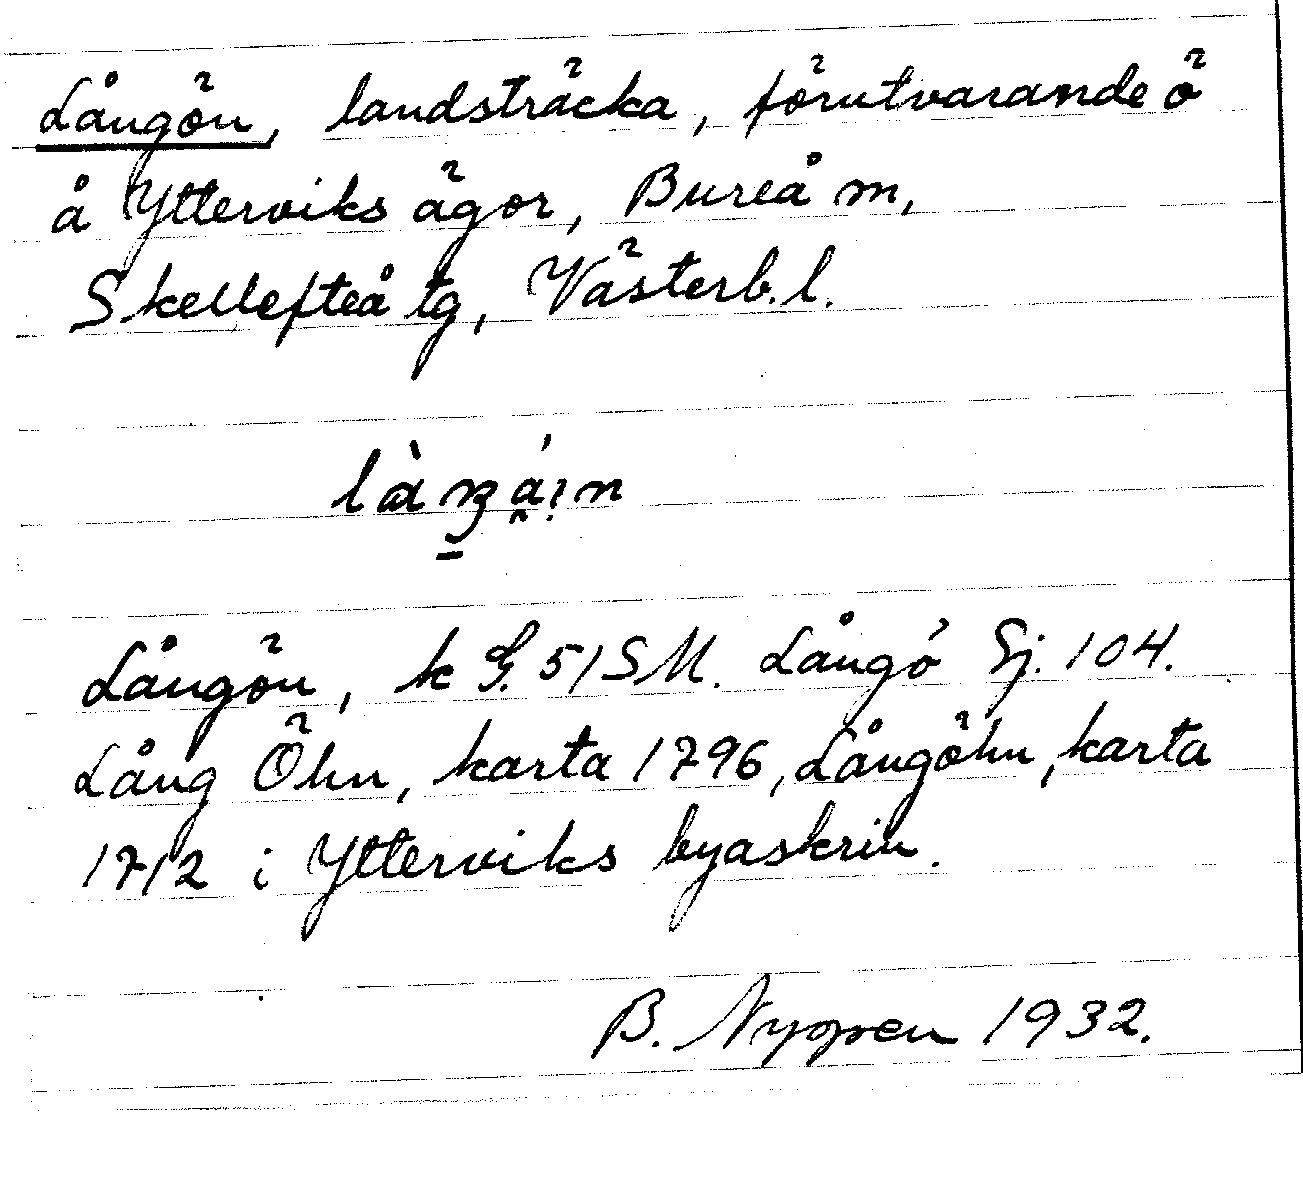 Långön, landsträcka, förutvarande ö
å Ytterviks ägor, Bureå m,
Skellefteå tg, Västerb. l.
Långön, k G. 51SM. Långö Sj. 104.
Lång Öhn, karta 1796, Långöhn, karta
1712 i Ytterviks byaskrin.
B. Nyopen 1932.